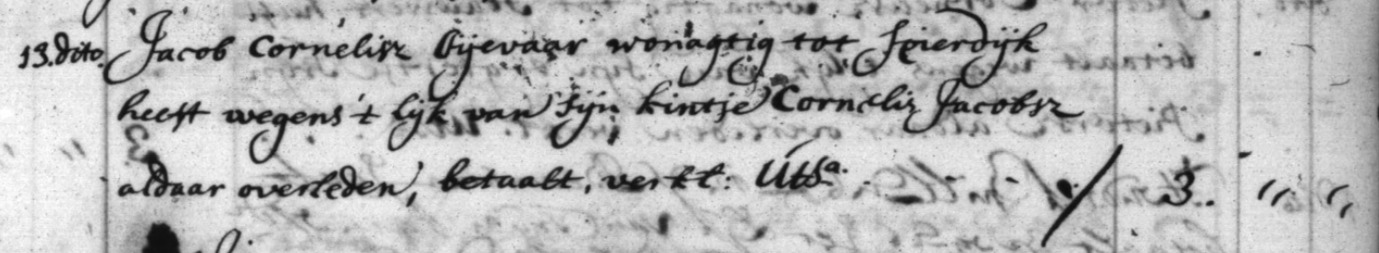 13. dito. Jacob Cornelisz Sijevaar wonagtig tot Spierdijk
heeft wegens 't lijk van sijn kintje Cornelis Jacobsz
aldaar overleden, betaalt, verkl: Uts:a / 3. „ „